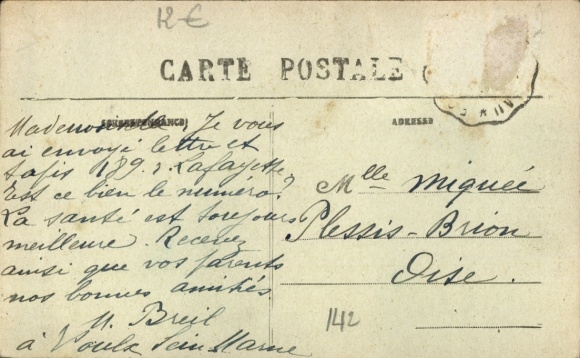 12 €
CARTE POSTALE
CORRESPONDANCE
ADRESSE
Mademoiselle, Je vous
ai envoyé lettre et
tapis 189. r. Lafayette.
Est ce bien le numéro?
La santé est toujours
meilleure. Recevez
ainsi que vos parents
nos bonnes amitiés
M. Breil
à Voulx Seine Marne
Mlle Miquée
Plessis-Brion
Oise.
142